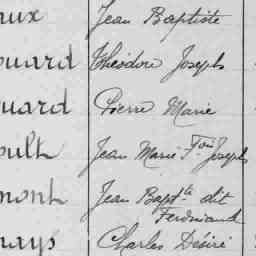 aux Jean Baptiste
ouard Théodore Joseph
uard Pierre Marie
oult Jean Marie Fois Joseph
mont Jean Baptte dit
Ferdinand
nays Charles Désiré